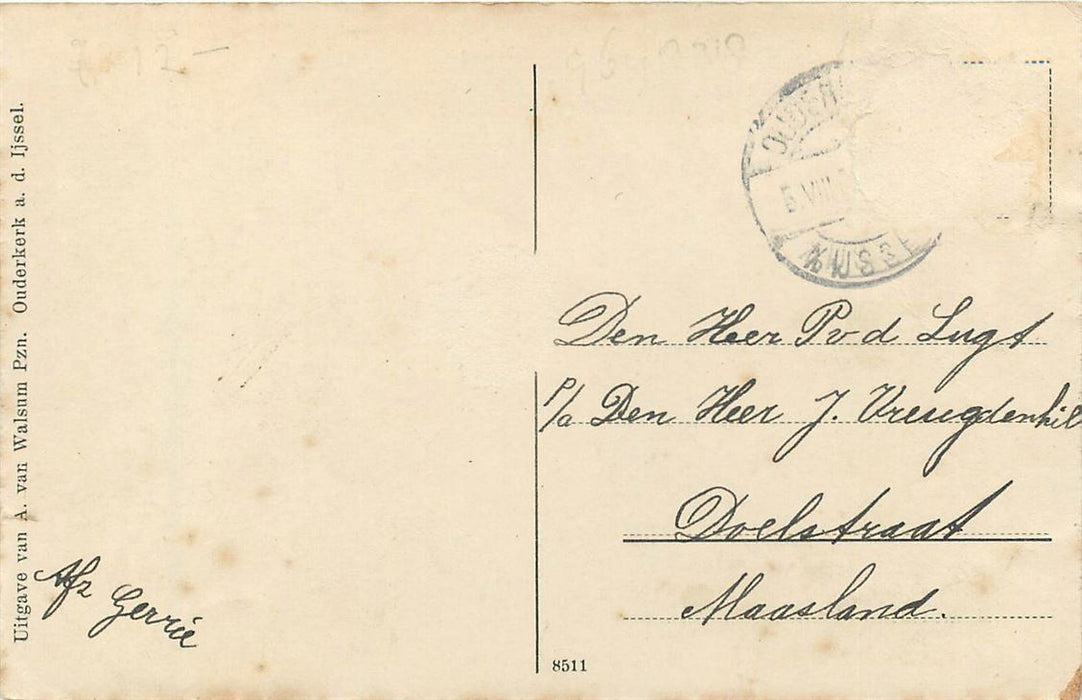 Uitgave van A. van Walsum Pzn. Ouderkerk a. d. Ijssel.
Afz Gerrie
OUDER
5 VIII
A/D IJSSE
Den Heer P v d Lugt
P/a Den Heer J. Vreugdenhil
Doelstraat
Maasland.
8511